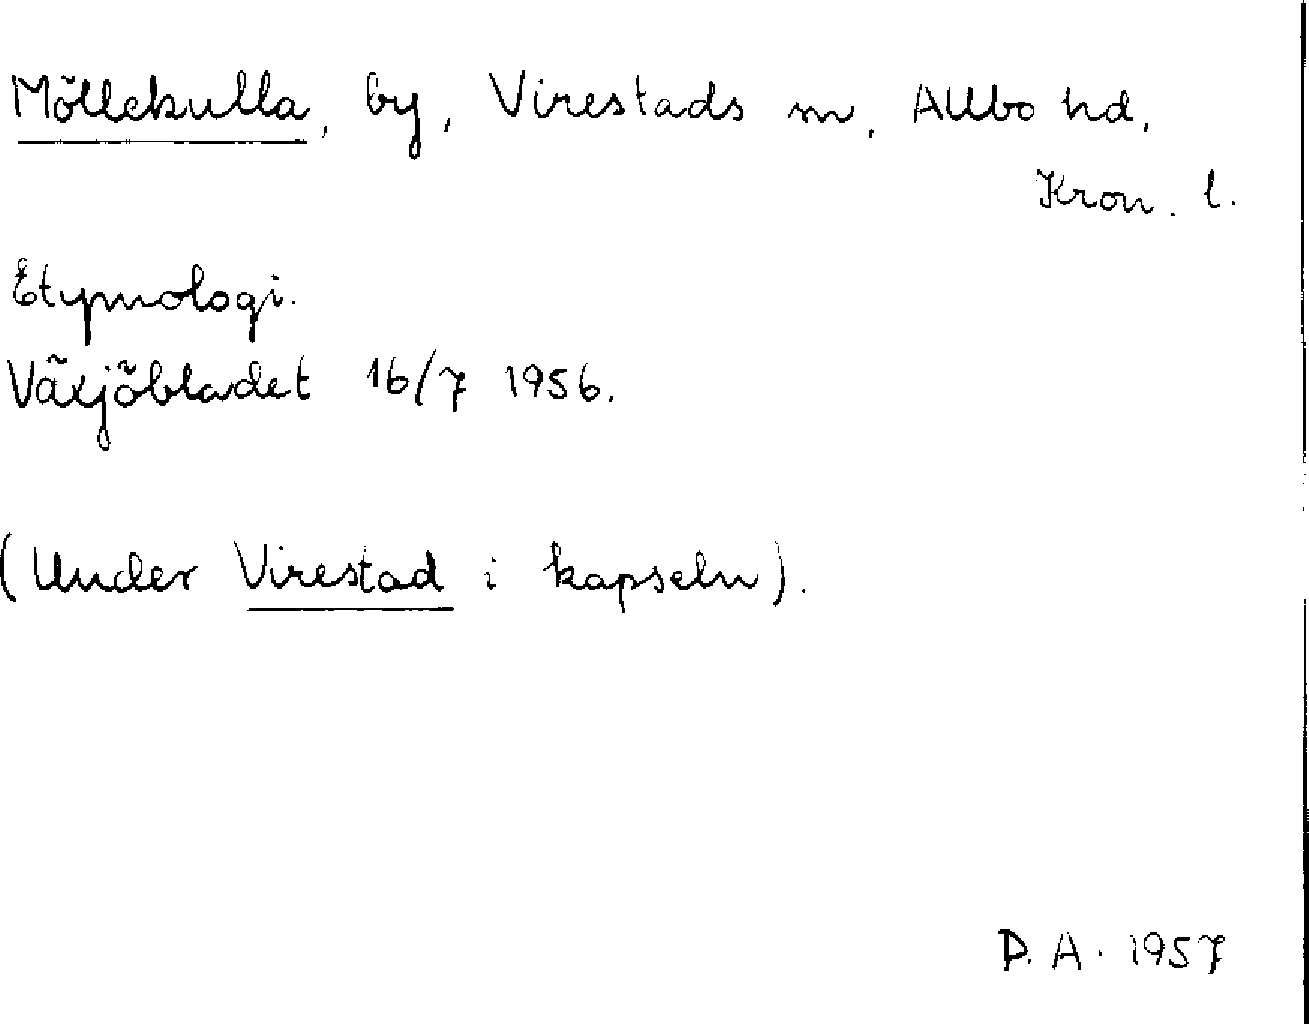 Möllekulla, by, Virestads sn, Allbo hd,
Kron. l.
Etymologi.
Växjöbladet 16/7 1956.
(Under Virestad i kapseln).
D. A. 1957